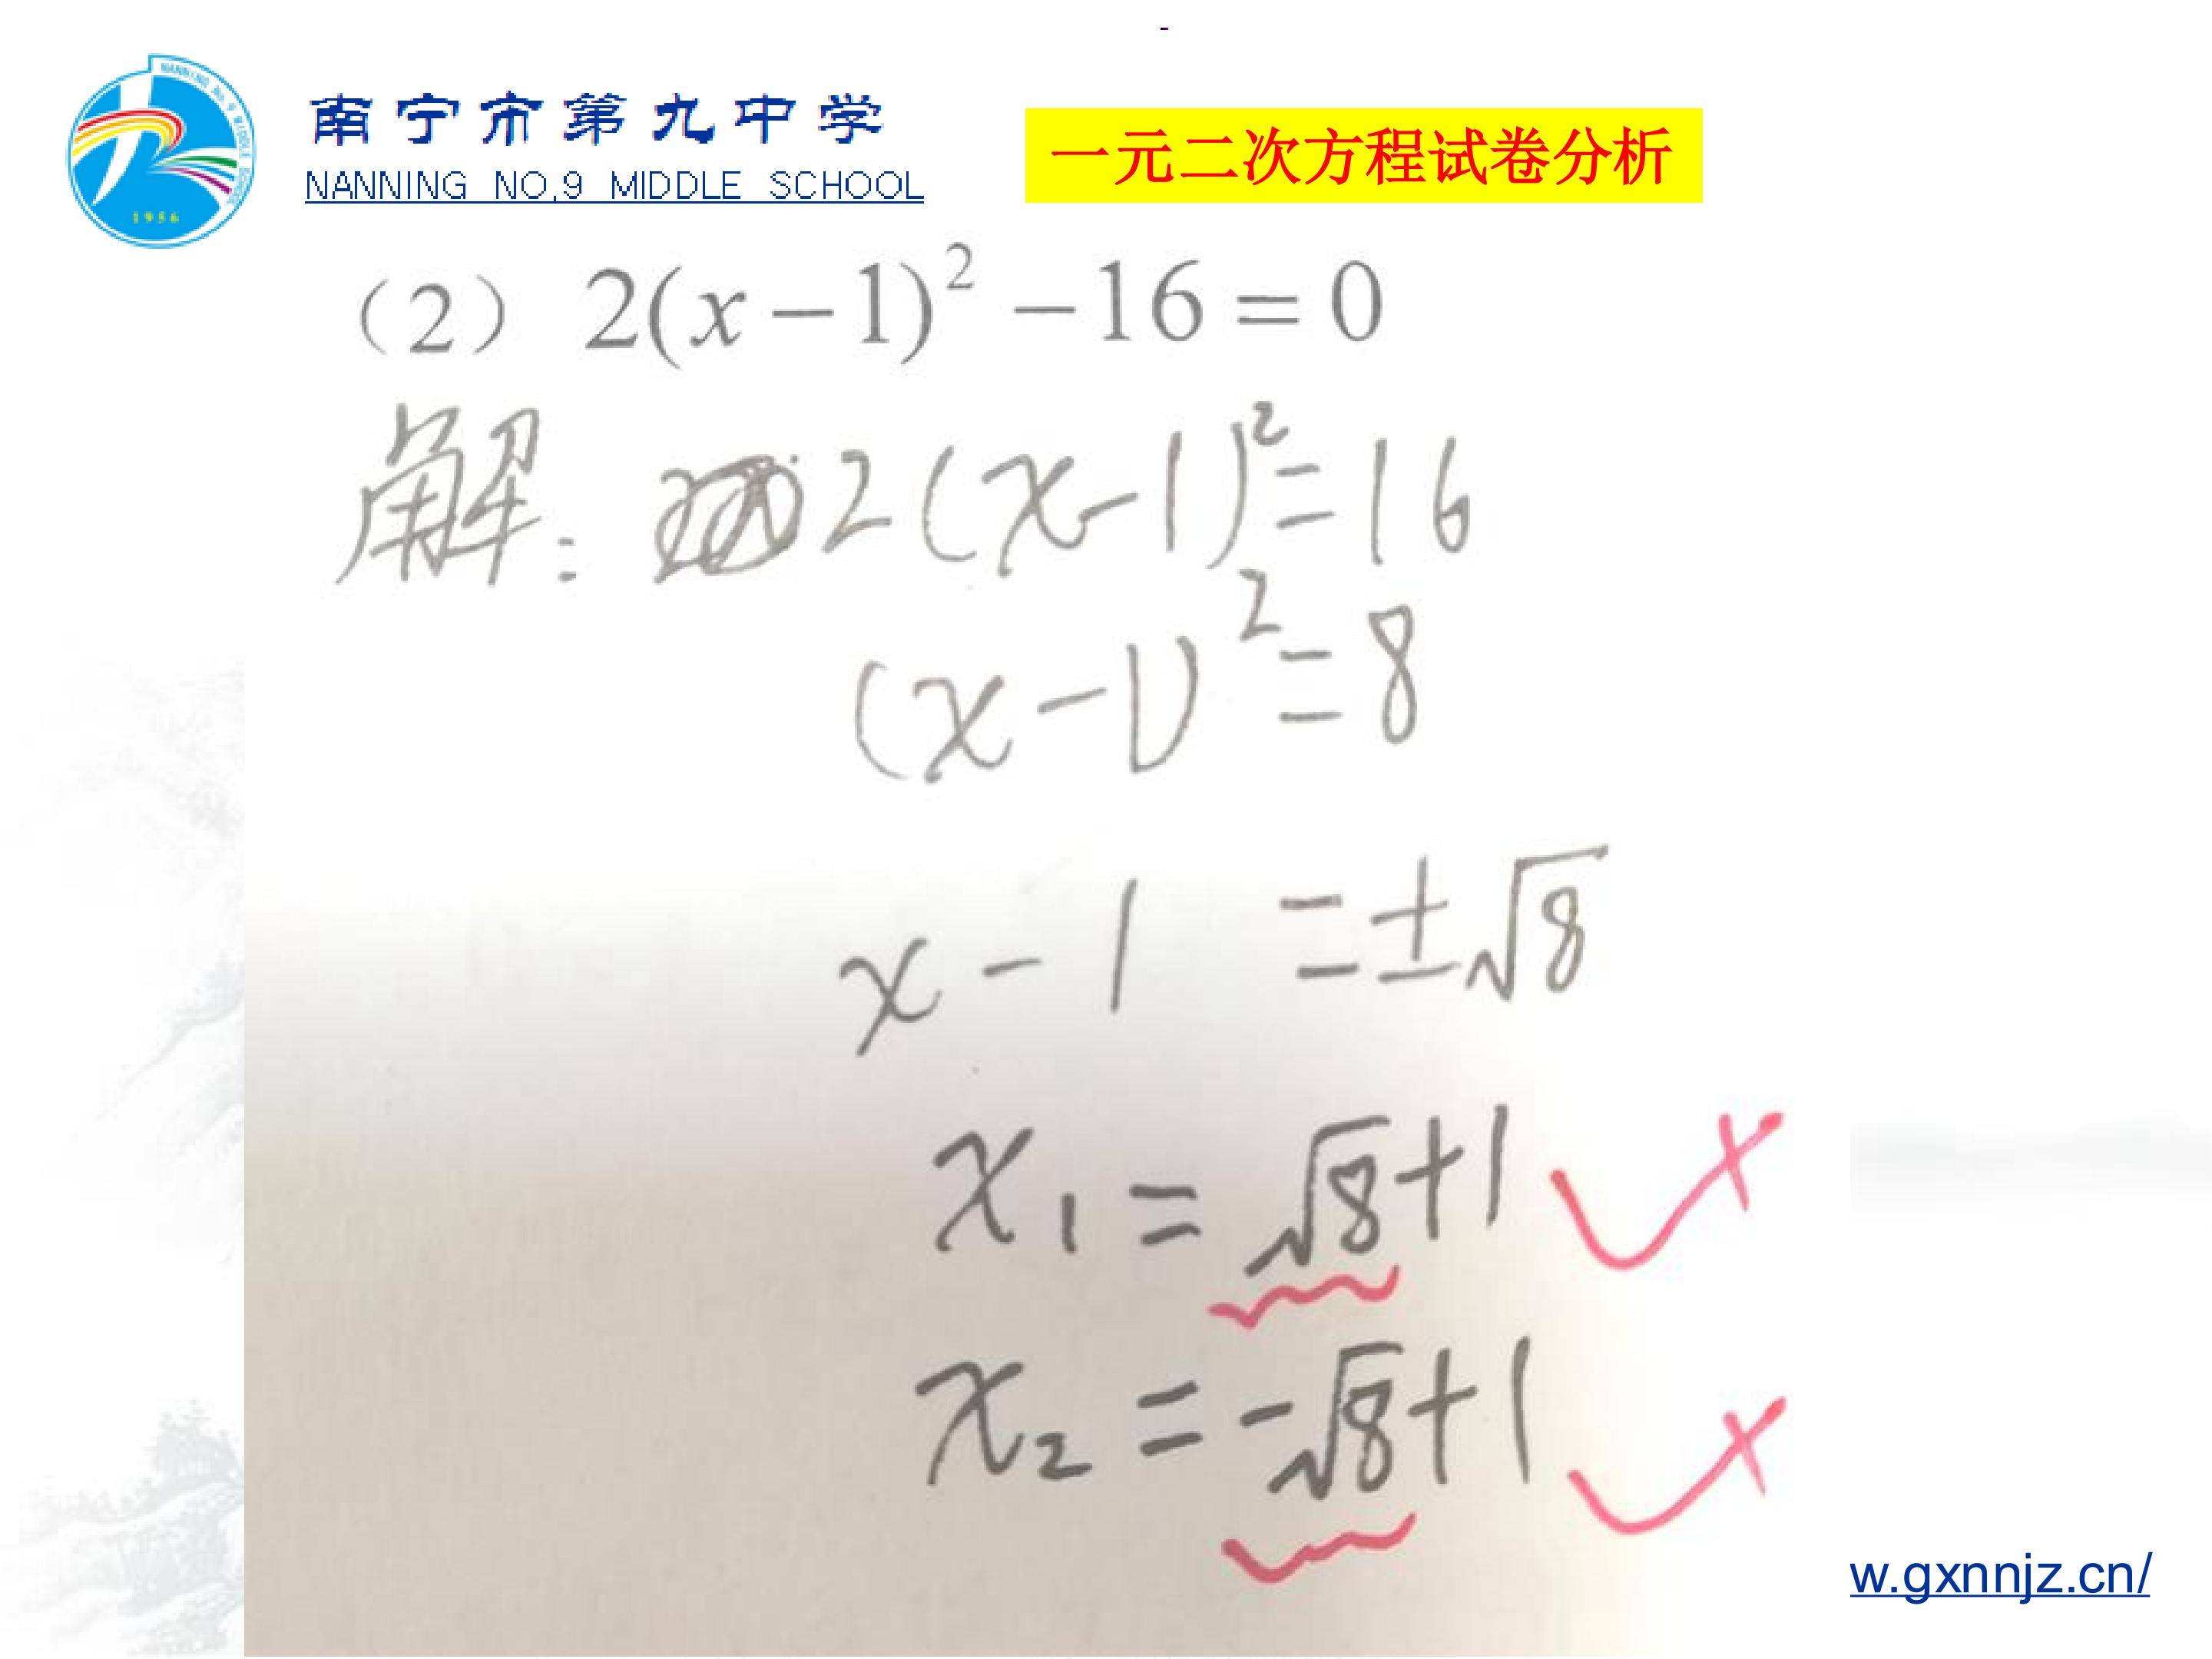 -
NANNING NO.9 MIDDLE SCHOOL
1956
南宁市第九中学
NANNING NO.9 MIDDLE SCHOOL
一元二次方程试卷分析
（2） 2(x-1)² -16 = 0
解: 2(x-1)²=16
(x-1)²=8
x-1 =±√8
x₁=√8+1
x₂=-√8+1
w.gxnnjz.cn/